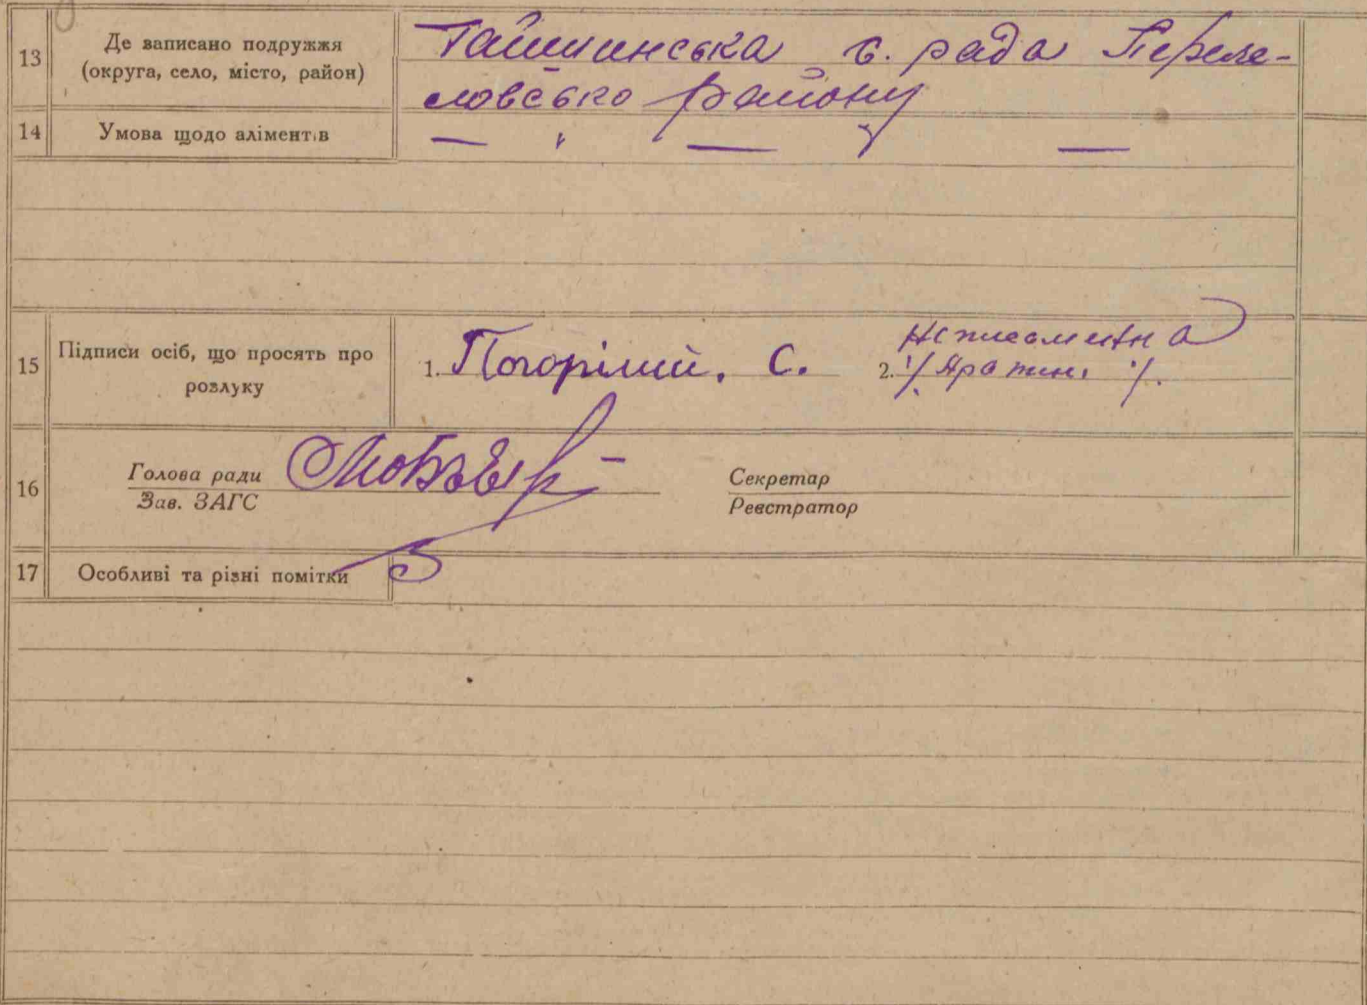 13 Де записано подружжя (округа, село, місто, район) Ташинська с. рада Переяс-
ловсько району
14 Умова щодо аліментів — " — " —
15 Підписи осіб, що просять про розлуку 1. Погорілий. С. 2.
неписьменна
16 Голова ради
Зав. ЗАГС
Секретар
Реєстратор
17 Особливі та різні помітки